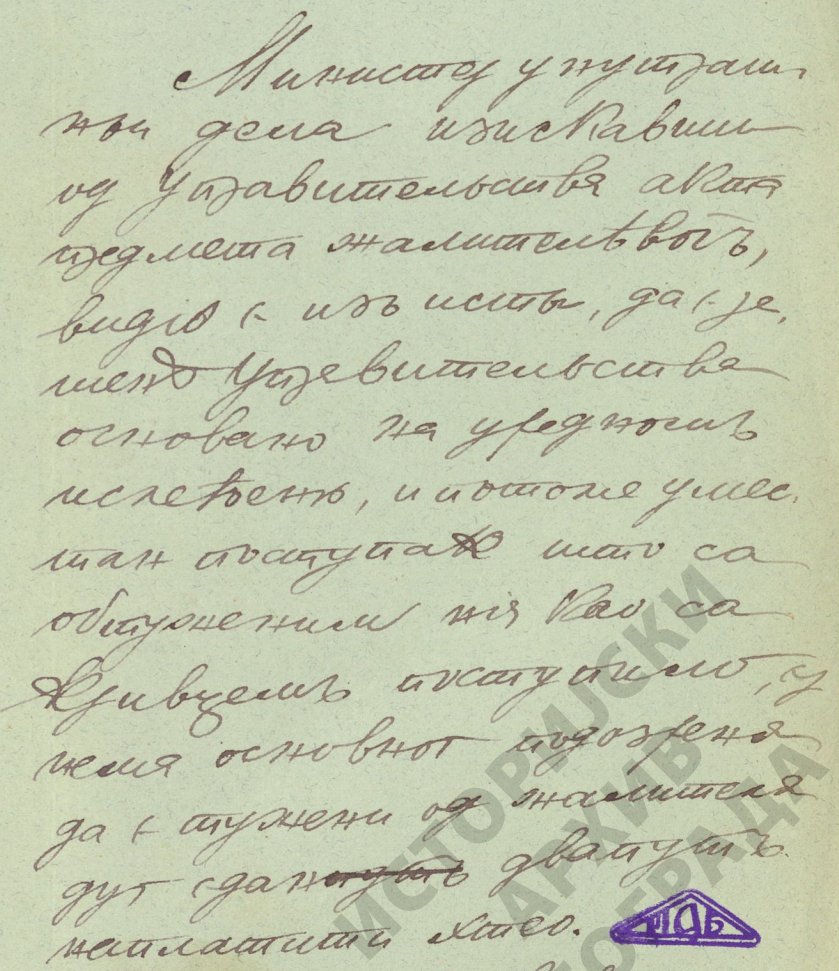 Министер унутраш-
ньи дела изискавши
од Управителства акта
предмета жалителѣвогъ,
видіо є изъ исты, да є ре-
шенѣ Управителства
основано на уредномъ
ислеђеню, и потоме умес-
тан поступак што са
обтуженим ние као са
кривцемъ поступило, у
нема основног подозреня
да є тужени од жалителя
дуг єдан двапутъ
наплатити хтео.
ИСТОРИЈСКИ
АРХИВ
БЕОГРАДА
ИАБ